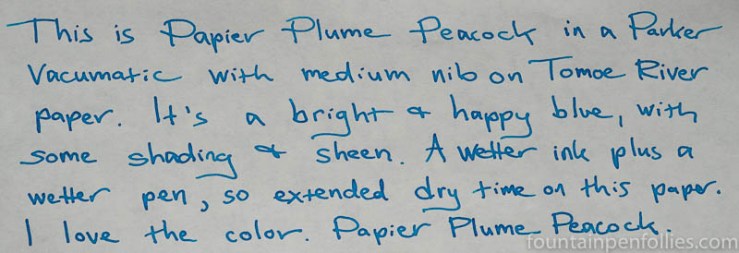 This is Papier Plume Peacock in a Parker
Vacumatic with medium nib on Tomoe River
paper. It's a bright & happy blue, with
some shading & sheen. A wetter ink plus a
wetter pen, so extended dry time on this paper.
I love the color. Papier Plume Peacock.
fountainpenfollies.com